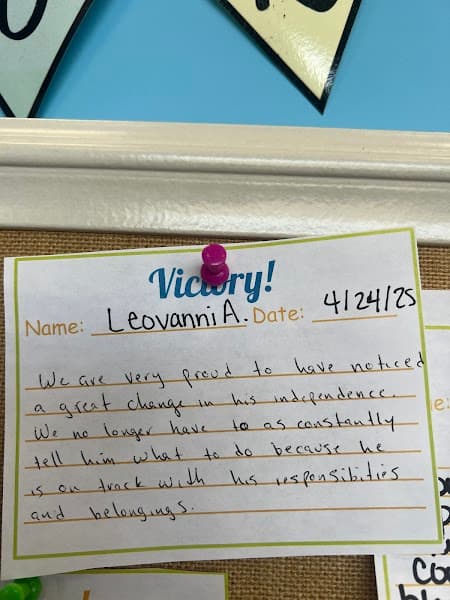 Victory!
Name: Leovanni A. Date: 4/24/25
We are very proud to have noticed
a great change in his independence.
We no longer have to as constantly
tell him what to do because he
is on track with his responsibities
and belongings.
e:
Co